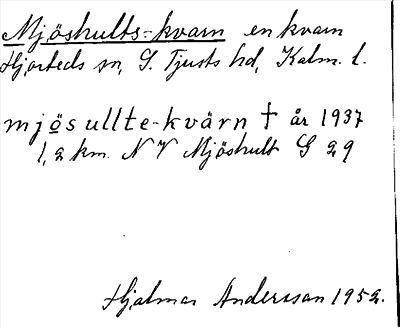 Mjöshults-kvarn en kvarn
Hjorteds sn, S. Tjusts hd, Kalm. l.
mjösullte-kvärn † år 1937
1,2 km. NV Mjöshult G 29
Hjalmar Andersson 1952.